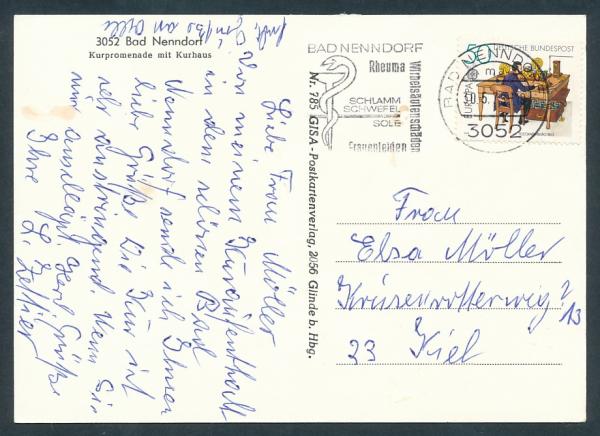 3052 Bad Nenndorf
Kurpromenade mit Kurhaus
Liebe Frau Möller
Von meinem Kuraufenthalt
in dem schönen Bad
Nenndorf sende ich Ihnen
liebe Grüße. Die Kur ist
sehr anstrengend. Wenn Sie
Grüße
Ihre L. Zettier
Nr. 785 GISA-Postkartenverlag, 2056 Glinde b. Hbg.
BAD NENNDORF
Rheuma
Wirbelsäulenschäden
SCHLAMM
SCHWEFEL
SOLE
Frauenleiden
50
DEUTSCHE BUNDESPOST
EUROPA
BAD NENNDORF
3052
Frau
Elsa Möller
Krusenrotterweg
13
23 Kiel